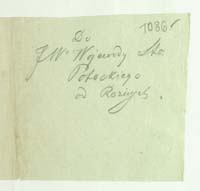 1086
Do
JW Wojewody Sta
Potockiego
od Różnych.